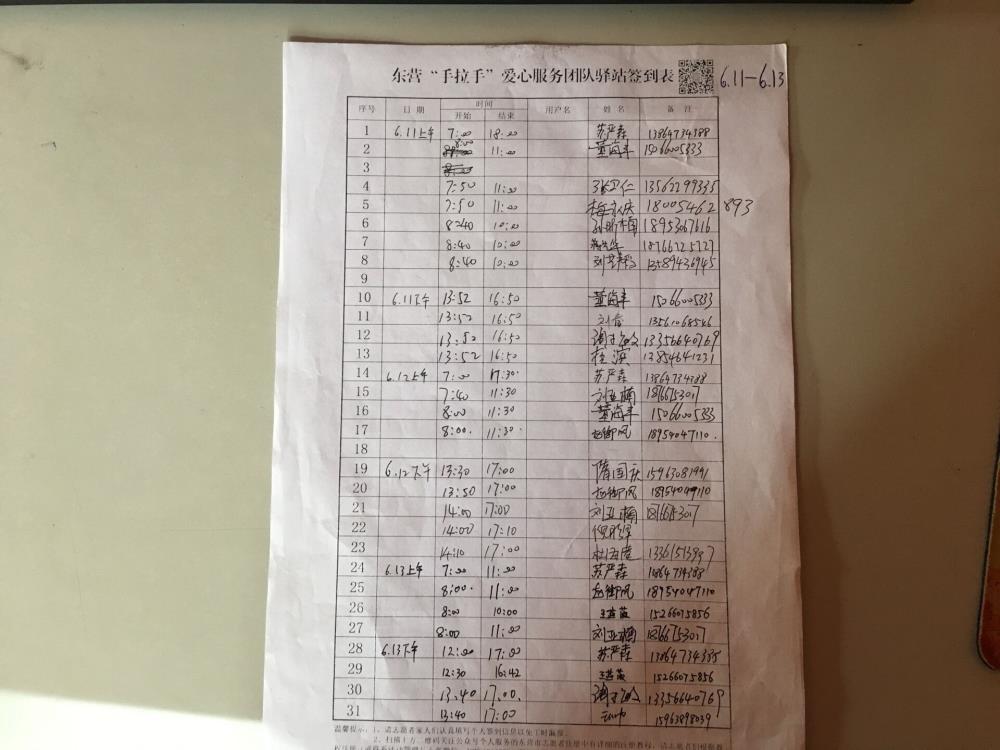 东营“手拉手”爱心服务团队驿站签到表 6.11-6.13
序号 日期 时间 用户名 姓名 备注
开始 结束
1 6.11上午 7:00 18:00 苏严森 13864734388
2 8:00 11:00 董海丰 15066005333
3
4 7:50 11:00 张卫仁 13562299335
5 7:50 11:00 梅永庆 18005462893
6 8:40 10:00 18953067616
7 8:40 10:00 18766725727
8 8:40 10:00 13589436945
9
10 6.11下午 13:52 16:50 董海丰 15066005333
11 13:52 16:50 刘春 13561068546
12 13:52 16:50 13356640769
13 13:52 16:50 桂滨 12854641231
14 6.12上午 7:00 17:30 苏严森 13864734388
15 7:40 11:30 刘亚楠 18766753017
16 8:00 11:30 董海丰 15066005333
17 8:00. 11:30. 18954047110.
18
19 6.12下午 13:30 17:00 隋国庆 15963081991
20 13:50 17:00 18954047110
21 14:00 17:00 刘亚楠 18766753017
22 14:00 17:10
23 14:10 17:00 13361513997
24 6.13上午 7:00 11:00 苏严森 13864734388
25 8:00. 11:00 18954047110
26 8:00 10:00 15266075856
27 8:00 11:00 刘亚楠 18766753017
28 6.13下午 12:00 17:00 苏严森 13864734335
29 12:30 16:42 15266075856
30 13:40 17:00. 13356640769
31 13:40 17:00 15963898039
温馨提示：1、请志愿者家人们认真填写个人签到信息以免工时漏报。
2、扫描上方二维码关注公众号